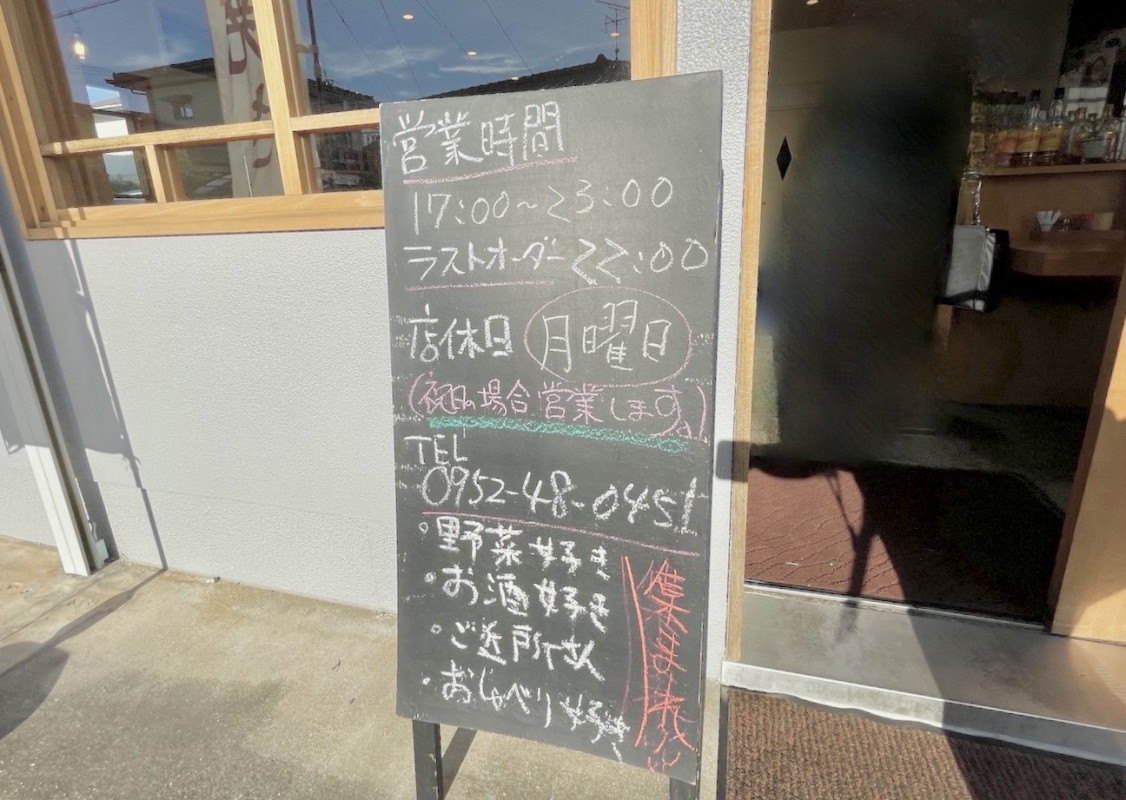 営業時間
17:00~23:00
ラストオーダー 22:00
店休日 月曜日
(祝日の場合営業します。)
TEL
0952-48-0451
・野菜好き
・お酒好き
・ご近所さん
・おしゃべり好き
集まれい